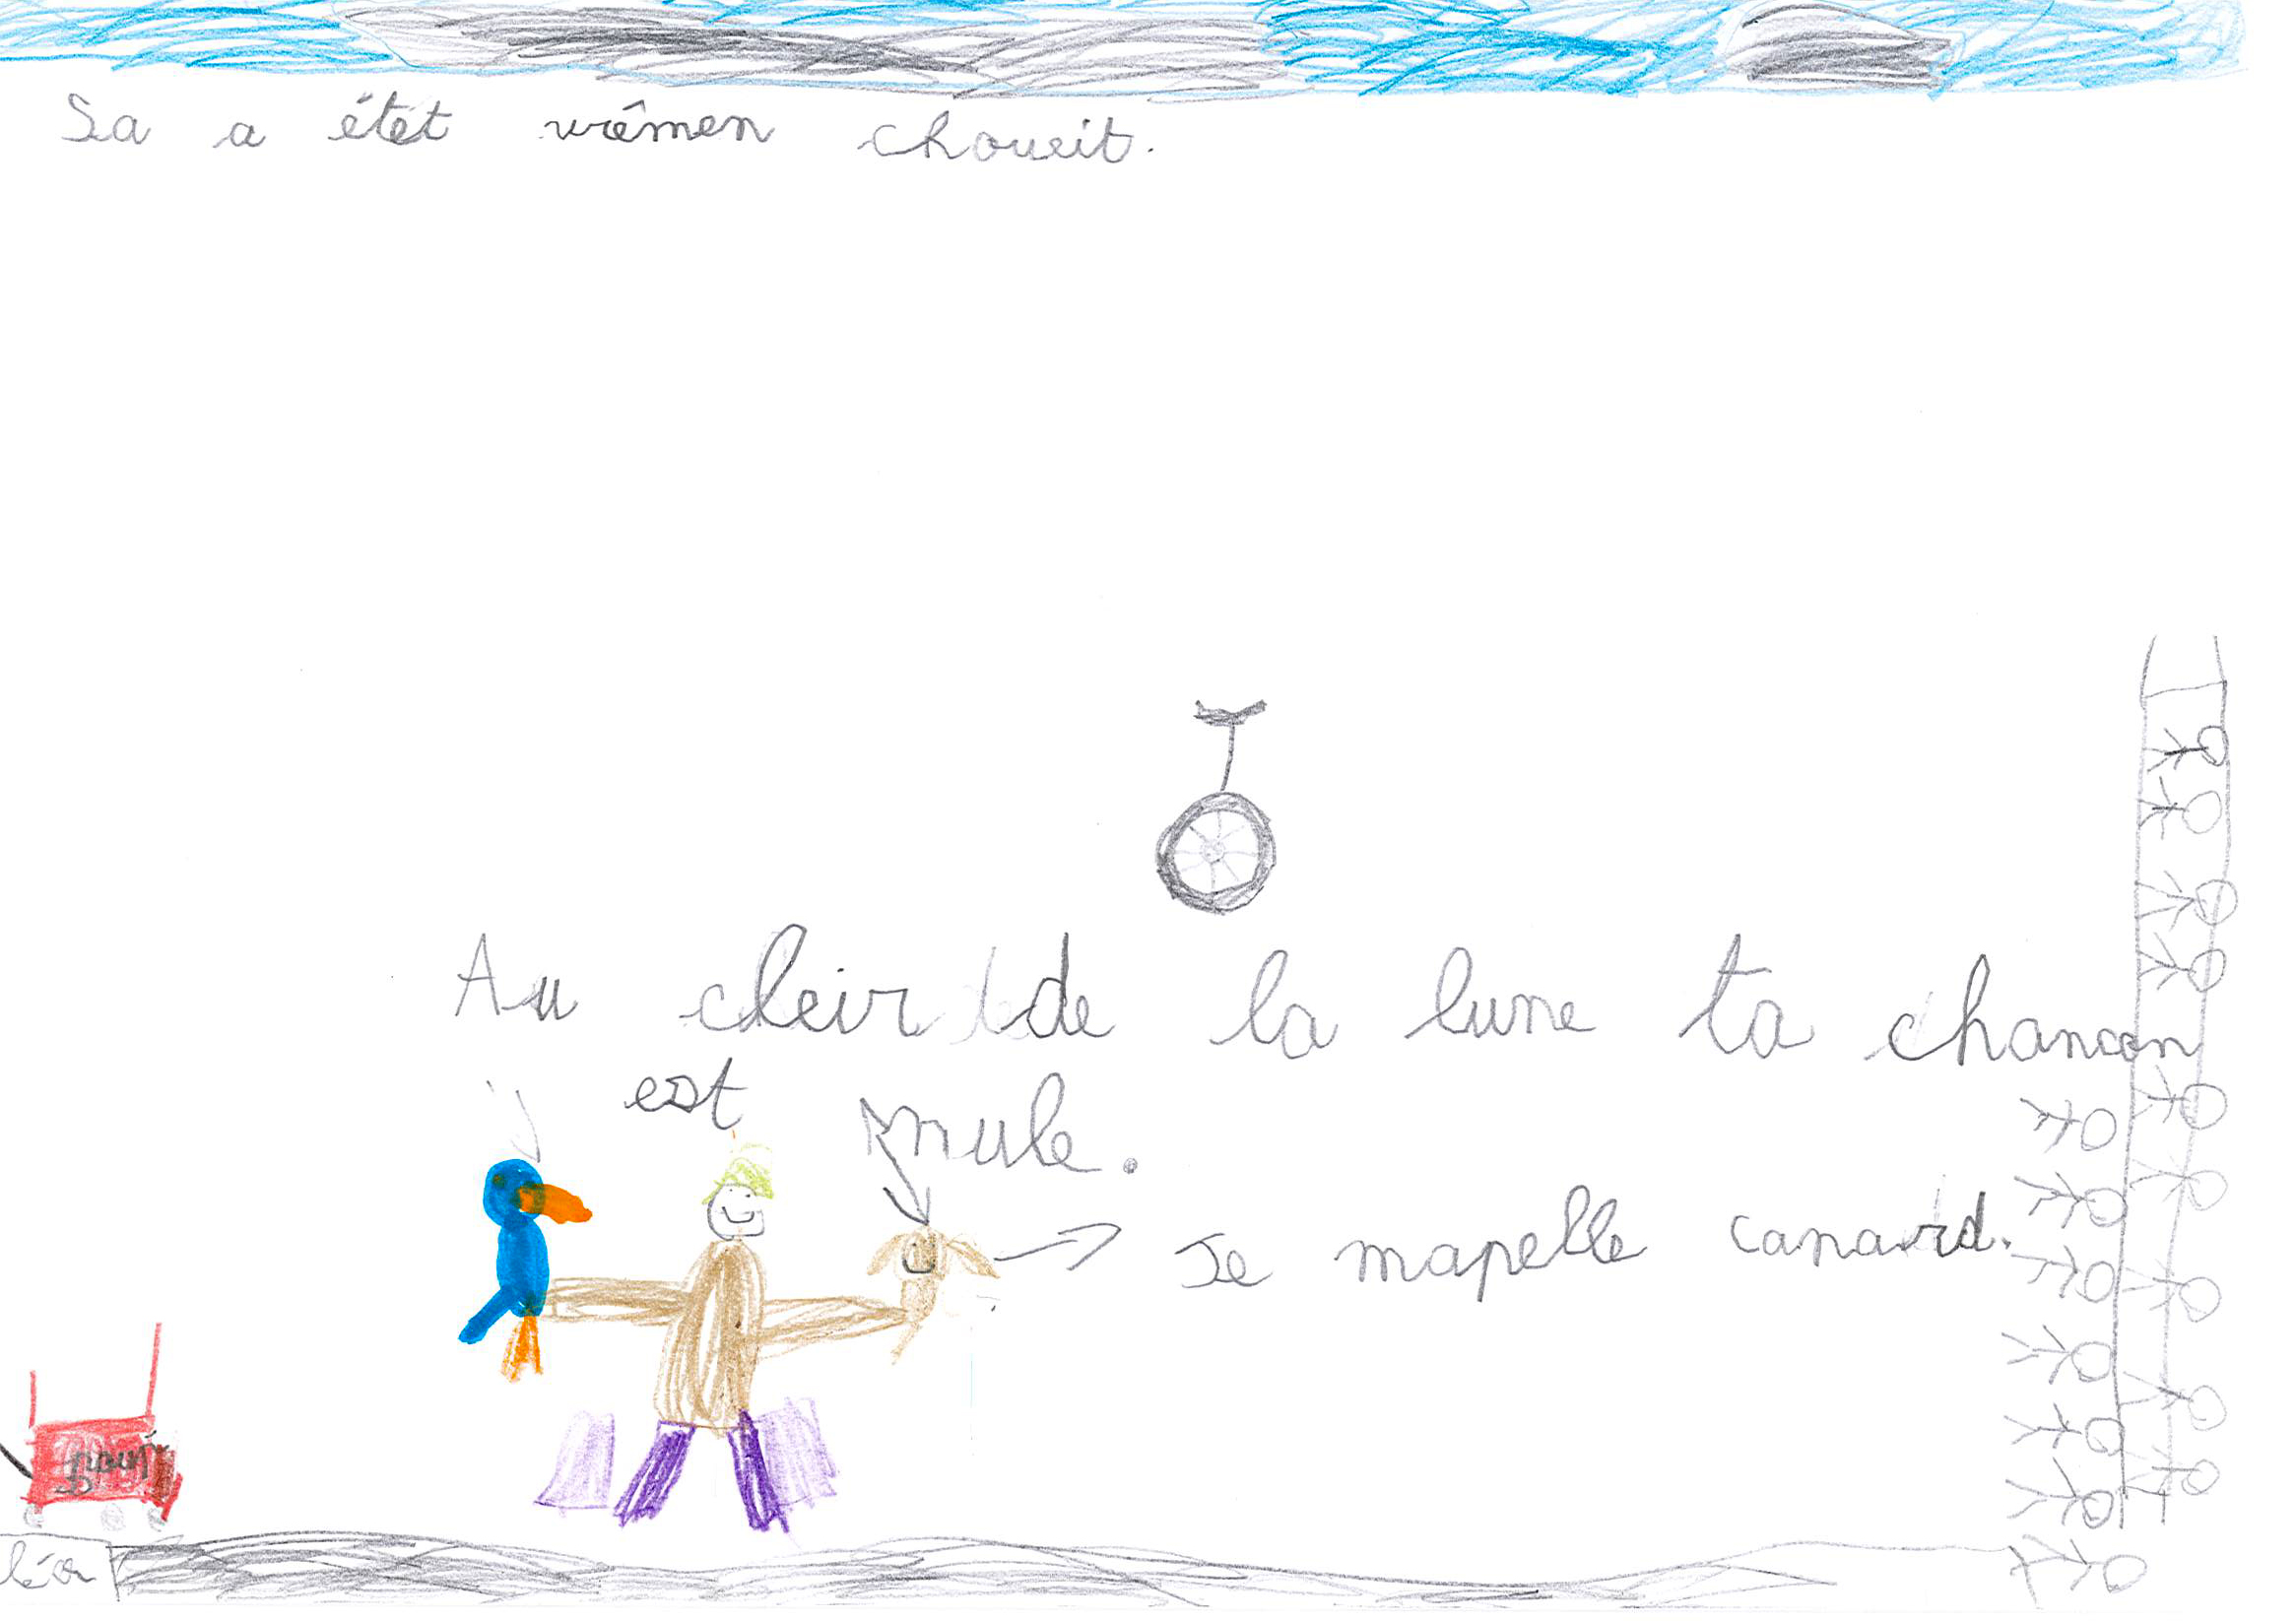 Sa a étét vrêmen choueit.
Au cleir de la lune ta chancon
est nule.
Je mapelle canard.
léa